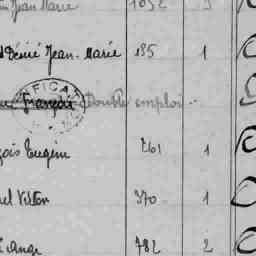 Jean Marie 1052
Désiré Jean-Marie 185 1
François Double emploi
çois Eugène 261 1
el Victor 370 1
Ange 782 2